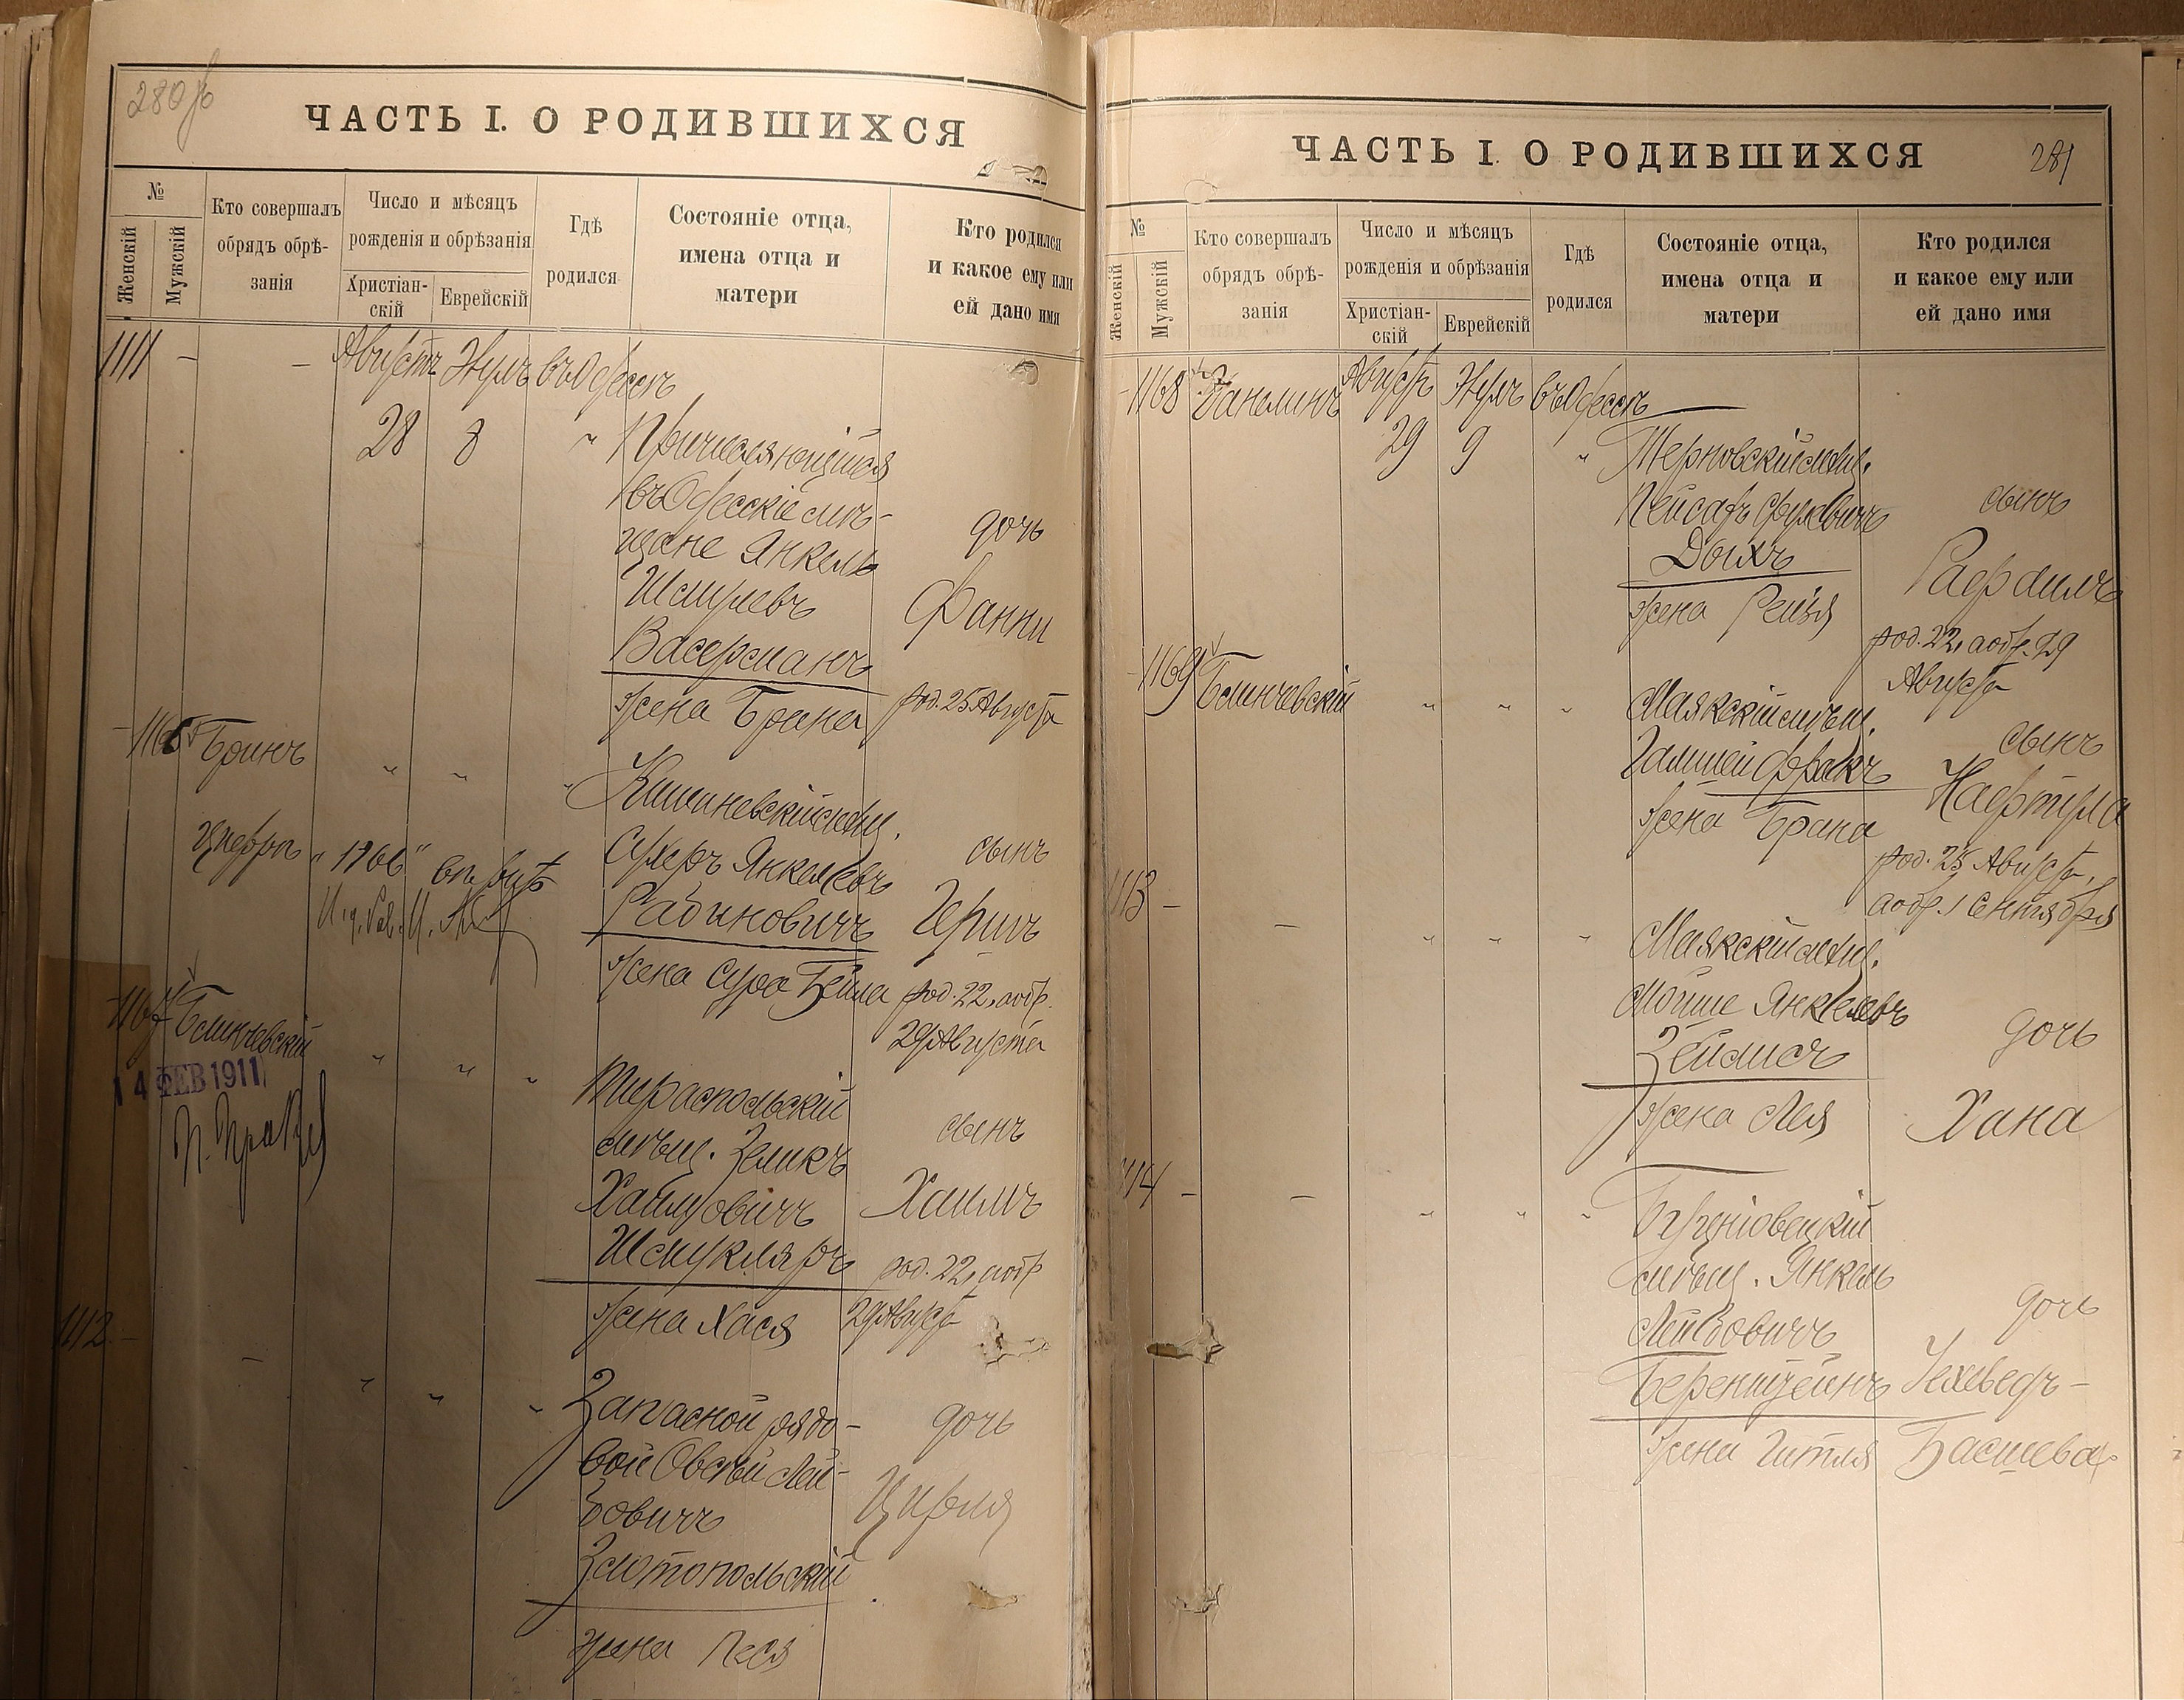 280
ЧАСТЬ I. О РОДИВШИХСЯ
№
Женскій
Мужскій
Кто совершалъ
обрядъ обрѣ-
занія
Число и мѣсяцъ
рожденія и обрѣзанія
Христіан-
скій
Еврейскій
Гдѣ
родился
Состояніе отца,
имена отца и
матери
Кто родился
и какое ему или
ей дано имя
1111 - - Августъ Элулъ въ Одессѣ
28 8 " Причисляющійся
въ Одесскіе мѣ-
щане Янкель
Шмулевъ
Васерманъ
жена Брана
дочь
Фанни
род. 25 Августа
- 1166 Бринъ " " " Кишиневскій мѣщ.
Сухеръ Янкелевъ
Рабиновичъ
жена Сура Бейла
сынъ
Гершъ
род. 22, а обр.
29 Августа
цифра "1166"
- 1167 Блинчевскій " " " Тираспольскій
мѣщ. Зеликъ
Хаимовичъ
Шмукляръ
жена Хася
сынъ
Хаимъ
род. 22, а обр.
29 Августа
14 ФЕВ 1911
1112 - - " " " Запасной рядо-
вой Овсѣй Лей-
бовичъ
Златопольскій
жена Песя
дочь
Цирля
ЧАСТЬ I. О РОДИВШИХСЯ
281
№
Женскій
Мужскій
Кто совершалъ
обрядъ обрѣ-
занія
Число и мѣсяцъ
рожденія и обрѣзанія
Христіан-
скій
Еврейскій
Гдѣ
родился
Состояніе отца,
имена отца и
матери
Кто родился
и какое ему или
ей дано имя
- 1168 Августъ Элулъ въ Одессѣ
29 9 " Терновскій мѣщ.
Пейсахъ Срулевичъ
Дыхъ
жена Рейзя
сынъ
Рафаилъ
род. 22, а обр. 29
Августа
- 1169 Блинчевскій " " " Маякскій мѣщ.
жена Брана
сынъ
Нафтула
род. 25 Августа,
а обр. 1 Сентября
1113 - - " " " Маякскій мѣщ.
Мойше Янкелевъ
Зейлисъ
жена Лея
дочь
Хана
1114 - - " " "
мѣщ. Янкель
Лейбовичъ
Беренштейнъ
жена Гитля
дочь
Іехеведъ-
Басшева